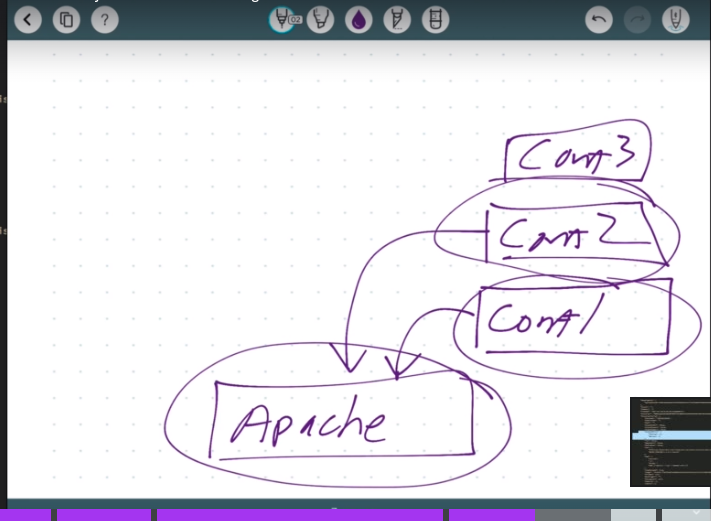 ?
02
Cont3
Cont2
Cont1
Apache